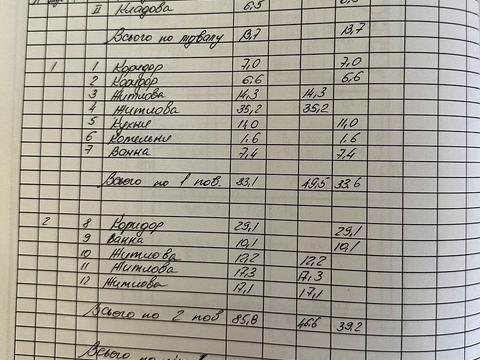 II Кладова 6,5
Всього по підвалу 13,7 13,7
1 1 Коридор 7,0 7,0
2 Коридор 6,6 6,6
3 Житлова 14,3 14,3
4 Житлова 35,2 35,2
5 Кухня 11,0 11,0
6 Котельня 1,6 1,6
7 Ванна 7,4 7,4
Всього по 1 пов. 83,1 49,5 33,6
2 8 Коридор 29,1 29,1
9 Ванна 10,1 10,1
10 Житлова 12,2 12,2
11 Житлова 17,3 17,3
12 Житлова 17,1 17,1
Всього по 2 пов 85,8 46.6 39,2
Всього по